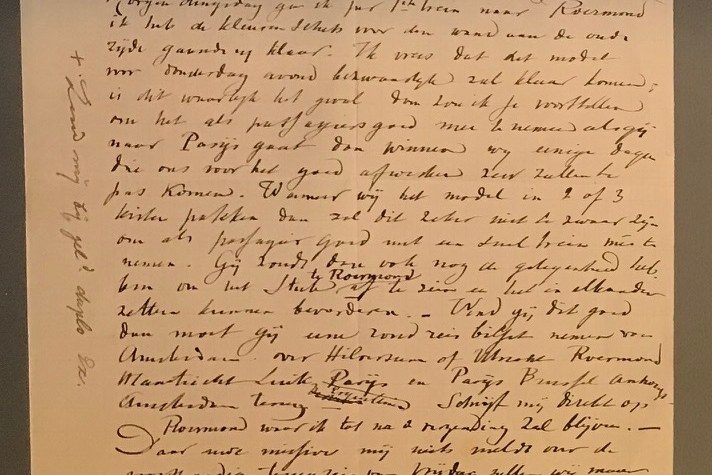 Morgen dingsdag ga ik per 1ste trein naar Roermond
ik heb de kleuren schets voor den wand aan de oude
zyde gaande wy klaar. Ik vrees dat het model
voor donderdag avond bezwaarlyk zal klaar komen;
is dit waarlyk het geval dan zou ik je voorstellen
om het als passagiersgoed mee te nemen als gy
naar Parys gaat dan winnen wy eenige dagen
die ons voor het goed afwerken zeer zullen te
pas komen. Wanneer wy het model in 2 of 3
kisten pakken dan zal dit zeker niet te zwaar zyn
om als passagier goed met een sneltrein mee te
nemen. Gy zoudt dan ook nog de gelegenheid heb-
te Roermond
ben om het stuk af te zien en het in elkander
zetten kunnen bevorderen. – Vind gy dit goed
dan moet gy eene rondreis biljet nemen van
Amsterdam over Hilversum of Utrecht Roermond
Maastricht Luik Parys en Parys Brussel Antwerp
Amsterdam terug Schryf my direkt op
Roermond waar ik tot na de verzending zal blyven. –
Daar uwe missive my niets meldt over de
+ Zend my bij gel.d duplo